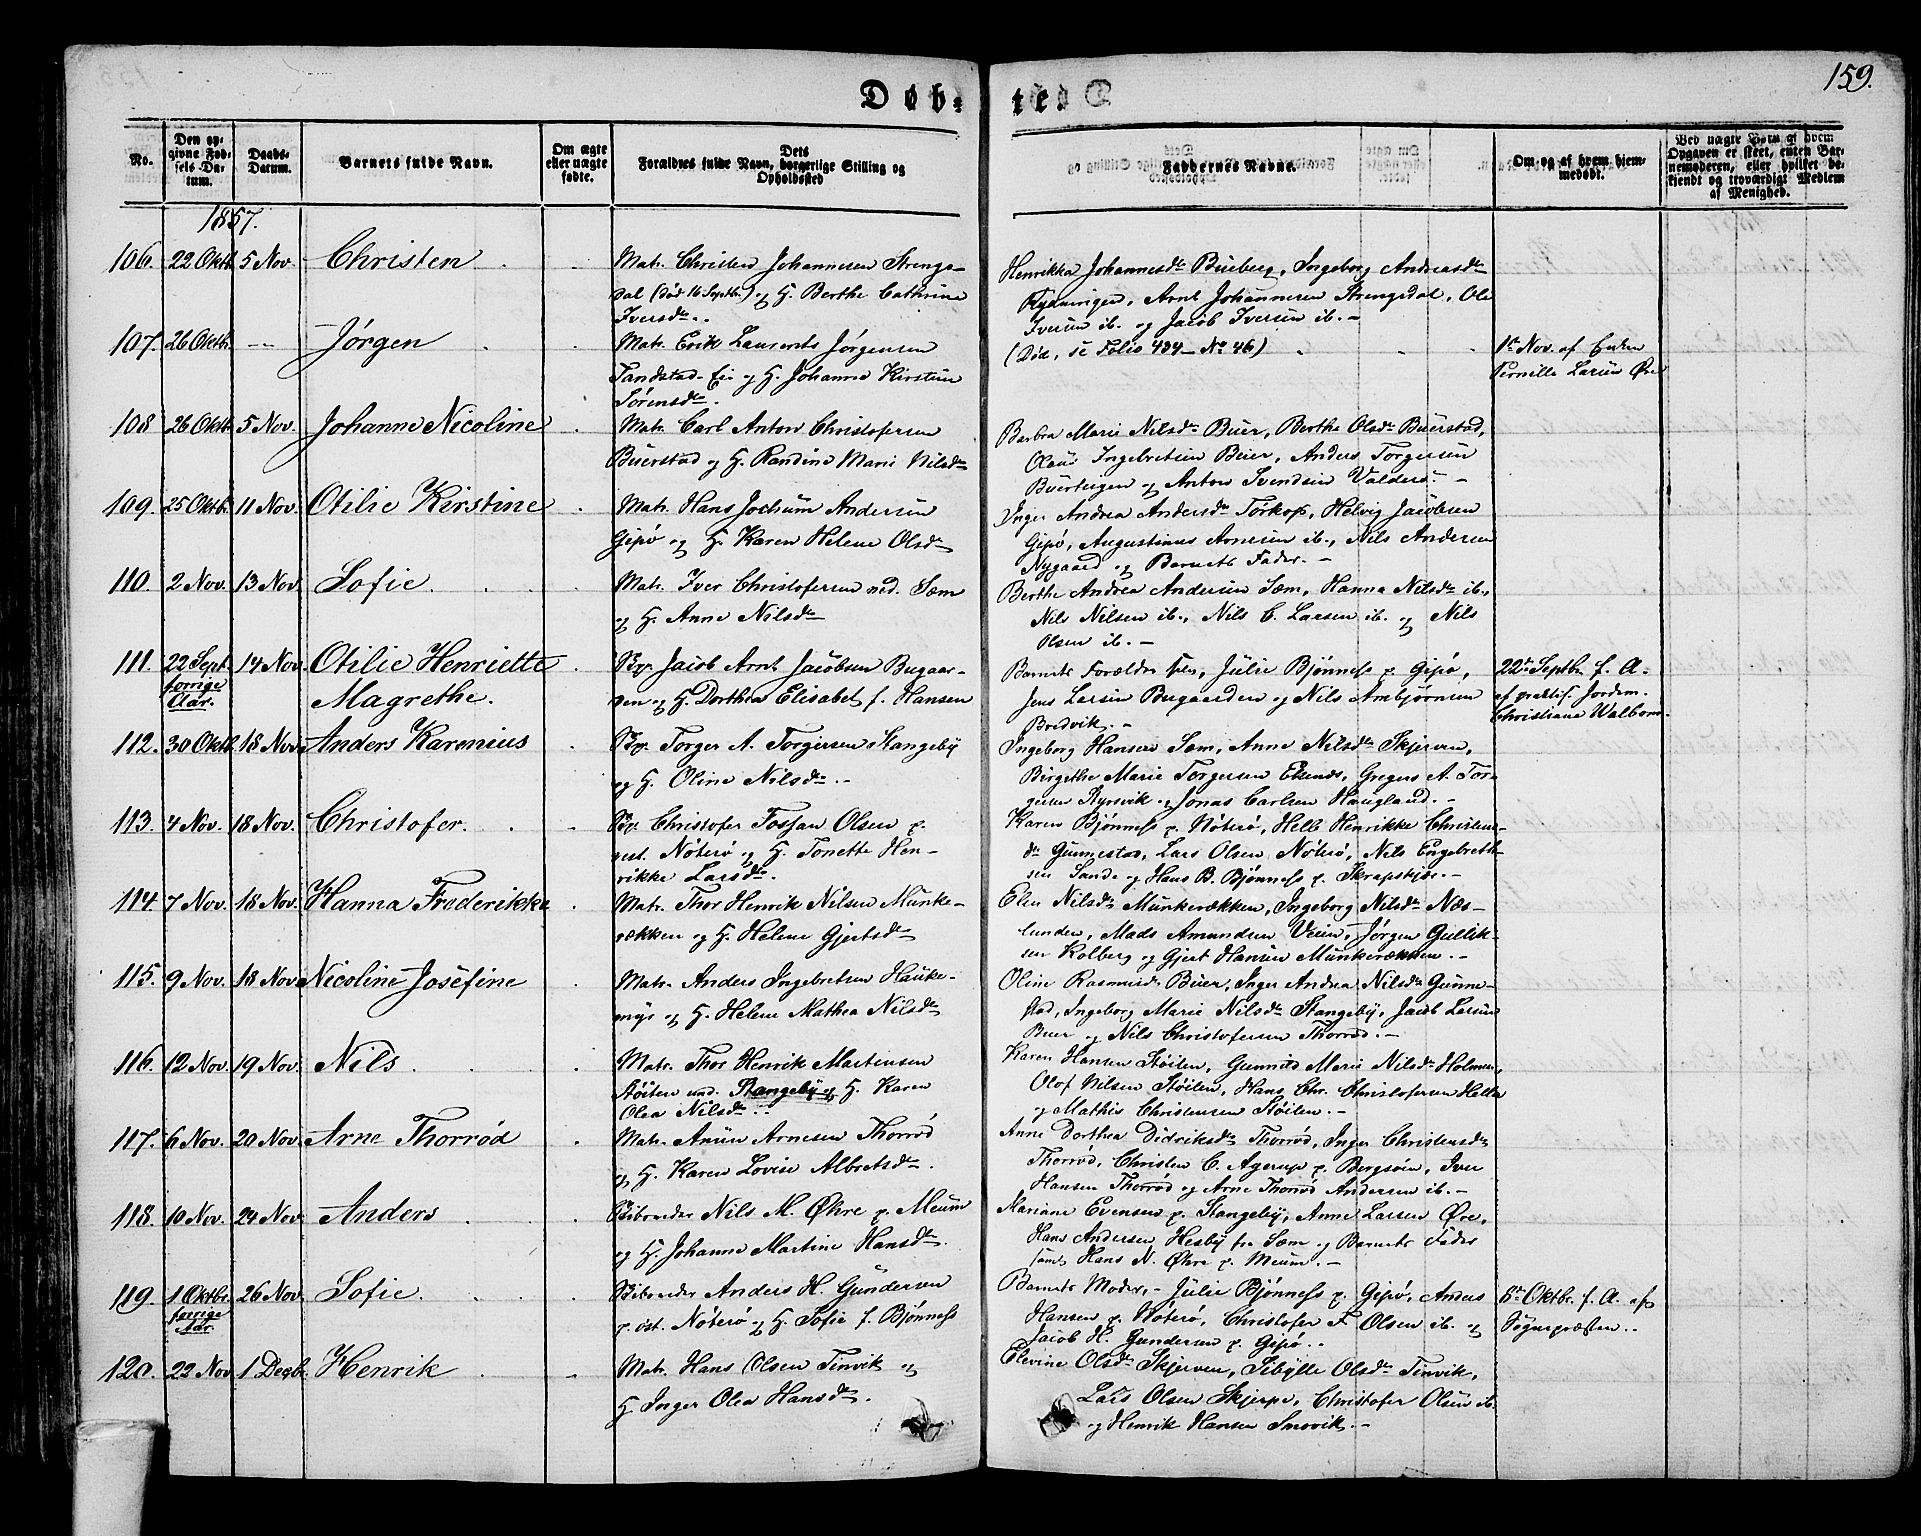 159.
Døb-
te.
No.
Den op-
givne Fød-
sels Da-
tum.
Daabs-
Datum.
Barnets fulde Navn.
Om ægte
eller uægte
fødte.
Forældres fulde Navn, borgerlige Stilling og
Opholdsted
Faddernes Navne.
Om og af hvem hjem-
medøbt.
Ved uægte Børn af hvem
Opgaven er skeet, enten Bar-
nemoderen, eller hvilket be-
kjendt og troværdigt Medlem
af Menighed.
1857.
106. 22 Oktb. 5 Nov. Christen
Matr. Christen Johannesen Strengs-
dal (død 16 Septbr.) og H. Berthe Cathrine
Iversdtr.
Henrikka Johannesdtr. Bueberg, Ingeborg Andreasdtr.
Arnt Johannesen Strengsdal, Ole
Iversen ib. og Jacob Iversen ib. -
107. 26 Oktb. -- Jørgen
Matr. Erik Laurents Jørgensen
Tandstad-Eie og H. Johanne Kirstine
Sørensdtr.
(Død, se Folio 434 - No 46)
1ste Nov. af Enken
Pernille Larsen Øre
108 26 Oktb. 5 Nov. Johanne Nicoline
Matr. Carl Anton Christofersen
Buerstad og H. Randine Marie Nilsdtr.
Barbra Marie Nilsdtr. Buer, Berthe Olsdtr. Buerstad,
Olaus Ingebretsen Buer, Anders Torgersen
og Anton Svendsen Valders. -
109. 25 Oktbr. 11 Nov. Otilie Kirstine
Matr. Hans Jochum Andersen
Gipø og H. Karen Helene Olsdtr.
Inger Andrea Andersdtr. Torkop, Helvig Jacobsen
Gipø, Augustinus Arnesen ib., Nils Andersen
Nygaard og Barnets Fader. -
110. 2 Nov. 13 Nov. Sofie
Matr. Iver Christofersen ned. Sæm
og H. Anne Nilsdtr.
Berthe Andrea Andersen Sæm, Hanna Nilsdtr. ib.,
Nils Nilsen ib., Nils C. Larsen ib. og Nils
Olsen ib. -
111. 22 Sept. 14 Nov. Otilie Henriette
forrige
Aar.
Magrethe.
Byr. Jacob Arnt Jacobsen Bugaar-
den og H. Dorthea Elisabet f. Hansen
Barnets Forældre selv, Julie Bjønness p. Gipø,
Jens Larsen Bugaarden og Nils Arnbjørnsen
Bredvik. -
22de Septbr. f. A.
af praktis. Jordem.
Christiane Walbom.
112. 30 Oktb. 18 Nov. Anders Karenius
Byr. Torger A. Torgersen Stangeby
og H. Oline Nilsdtr. -
Ingeborg Hansen Sæm, Anne Nilsdtr. Skjerven,
Birgethe Marie Torgersen Ekenæs, Gregers A. Tor-
gersen Byrsvik og Jonas Carlsen Haugland. -
113. 4 Nov. 18 Nov. Christofer.
Byr. Christofer Fossan Olsen p.
vest. Nøterø og H. Tonette Hen-
rikke Larsdtr.
Karen Bjønness p. Nøterø, Helle Henrikke Christens-
dtr. Gunnestad, Lars Olsen Nøterø, Nils Engebreth-
sen Sande og Hans B. Bjønness p. Skrapstjør. -
114. 7 Nov. 18 Nov. Hanna Frederikke
Matr. Thor Henrik Nilsen Munke-
rækken og H. Helene Gjertsdtr.
Elen Nilsdtr. Munkerækken, Ingeborg Nilsdtr. Næs-
lunden, Mads Amundsen Veien, Jørgen Gullik-
sen Kolberg og Gjert Hansen Munkerækken. -
115. 9 Nov. 18 Nov. Nicoline Josefine
Matr. Anders Ingebretsen Hauke-
myr og H. Helene Mathea Nilsdtr.
Oline Rasmusdtr. Buer, Inger Andrea Nilsdtr. Gunne-
stad, Ingeborg Marie Nilsdtr. Stangeby, Jacob Larsen
Buer og Nils Christofersen Thorrød. -
116. 12 Nov. 19 Nov. Nils
Matr. Thor Henrik Martensen
Støilen und. Stangeby og H. Karen
Olea Nilsdtr.
Karen Hansen Støilen, Gunnild Marie Nilsdtr. Holmen,
Olof Nilsen Støilen, Hans Chr. Christofersen Hella
og Mathis Christensen Støilen. -
117. 6 Nov. 20 Nov. Arne Thorrød
Matr. Anun Arnesen Thorrød
og H. Karen Lovise Albretsdtr.
Anne Dorthea Didriksdtr. Thorrød, Inger Christensdtr.
Thorrød, Christen C. Agerup p. Bergsøen, Iver
Hansen Thorrød og Arne Thorrød Andersen ib. -
118. 10 Nov. 24 Nov. Anders
Selbrueder Nils M. Øhre p. Meum
og H. Johanne Martine Hansdtr.
Mariane Evensen p. Stangeby, Anne Larsen Øre,
Hans Andersen Hesby fra Sæm og Barnets Fader
samt Hans N. Øhre p. Meum. -
119. 1 Oktbr. 26 Nov. Sofie.
forrige
Aar.
Anders H. Gundersen
p. øst. Nøterø og H. Sofie f. Bjønness
Barnets Moder, - Julie Bjønness p. Gipø, Anders
Hansen p. Nøterø, Christofer F. Olsen ib. og
Jacob H. Gundersen p. Gipø.
8de Oktbr. f. A. af
Sognepræsten.
120. 22 Nov. 1 Decbr. Henrik
Matr. Hans Olsen Tinvik og
H. Inger Olea Hansdtr.
Elevine Olsdtr. Skjerven, Sibylle Olsdtr. Tinvik,
Lars Olsen Skjerpe, Christofer Olsen ib.
og Henrik Hansen Snovik. -